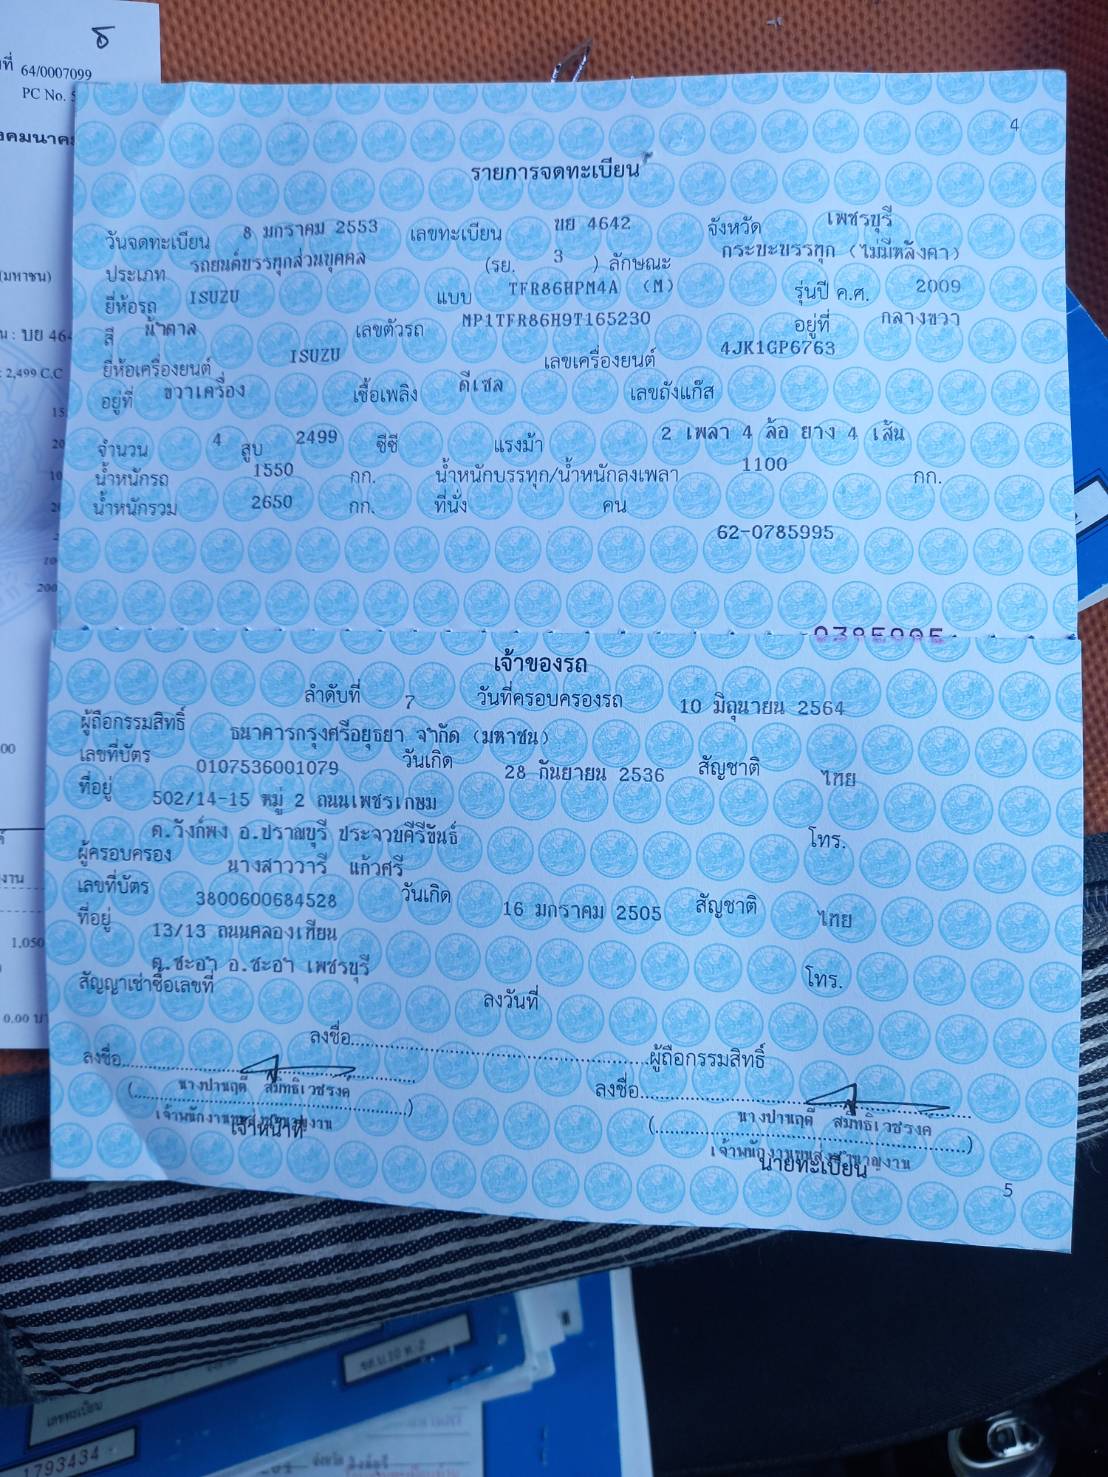 64/0007099
PC No.
4
รายการจดทะเบียน
วันจดทะเบียน 8 มกราคม 2553 เลขทะเบียน 4642 จังหวัด เพชรบุรี
ประเภท รถยนต์บรรทุกส่วนบุคคล (รย. 3 ) ลักษณะ กระบะบรรทุก (ไม่มีหลังคา)
ยี่ห้อรถ ISUZU แบบ TFR86HPM4A (M) รุ่นปี ค.ศ. 2009
สี น้ำตาล เลขตัวรถ MP1TFR86H9T165230 อยู่ที่ กลางขวา
ยี่ห้อเครื่องยนต์ ISUZU เลขเครื่องยนต์ 4JK1GP6763
อยู่ที่ ขวาเครื่อง เชื้อเพลิง ดีเซล เลขถังแก๊ส
จำนวน 4 สูบ 2499 ซีซี แรงม้า 2 เพลา 4 ล้อ ยาง 4 เส้น
น้ำหนักรถ 1550 กก. น้ำหนักบรรทุก/น้ำหนักลงเพลา 1100 กก.
น้ำหนักรวม 2650 กก. ที่นั่ง คน
62-0785995
เจ้าของรถ
ลำดับที่ 7 วันที่ครอบครองรถ 10 มิถุนายน 2564
ผู้ถือกรรมสิทธิ์ ธนาคารกรุงศรีอยุธยา จำกัด (มหาชน)
เลขที่บัตร 0107536001079 วันเกิด 28 กันยายน 2536 สัญชาติ ไทย
ที่อยู่ 502/14-15 หมู่ 2 ถนนเพชรเกษม
ต.วังก์พง อ.ปราณบุรี ประจวบคีรีขันธ์ โทร.
ผู้ครอบครอง นางสาววารี แก้วศรี
เลขที่บัตร 3800600684528 วันเกิด 16 มกราคม 2505 สัญชาติ ไทย
ที่อยู่ 13/13 ถนนคลองเทียน
ต.ชะอำ อ.ชะอำ เพชรบุรี โทร.
สัญญาเช่าซื้อเลขที่ ลงวันที่
ลงชื่อ ผู้ถือกรรมสิทธิ์
ลงชื่อ ลงชื่อ
(นางปานฤดี สมิทธิเวชรงค์) (นางปานฤดี สมิทธิเวชรงค์)
เจ้าพนักงานขนส่งชำนาญงาน เจ้าพนักงานขนส่งชำนาญงาน
เจ้าหน้าที่ นายทะเบียน
5
เลขทะเบียน
1793434